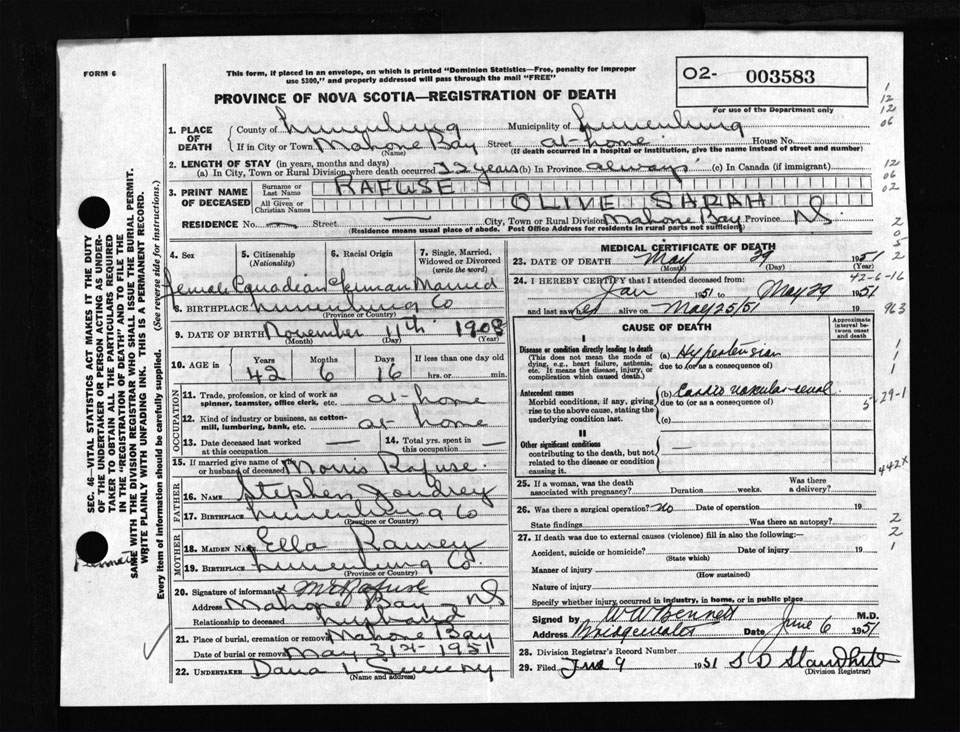 FORM 6
This form, if placed in an envelope, on which is printed "Dominion Statistics—Free, penalty for improper
use $300," and properly addressed will pass through the mail "FREE"
O2- 003583
For use of the Department only
PROVINCE OF NOVA SCOTIA—REGISTRATION OF DEATH
1. PLACE OF DEATH
County of Lunenburg Municipality of Lunenburg
If in City or Town Mahone Bay Street at home House No.
(Name) (If death occurred in a hospital or institution, give the name instead of street and number)
2. LENGTH OF STAY (in years, months and days)
(a) In City, Town or Rural Division where death occurred 22 years (b) In Province always (c) In Canada (if immigrant)
3. PRINT NAME OF DECEASED
Surname or Last Name RAFUSE
All Given or Christian Names OLIVE SARAH
RESIDENCE No. — Street — City, Town or Rural Division Mahone Bay Province NS.
(Residence means usual place of abode. Post Office Address for residents in rural parts not sufficient)
4. Sex 5. Citizenship (Nationality) 6. Racial Origin 7. Single, Married, Widowed or Divorced (write the word)
Female Canadian German Married
8. BIRTHPLACE Lunenburg Co
(Province or Country)
9. DATE OF BIRTH November 11th 1908
(Month) (Day) (Year)
10. AGE in Years Months Days If less than one day old
42 6 16 hrs. or min.
OCCUPATION
11. Trade, profession, or kind of work as spinner, teamster, office clerk, etc. at-home
12. Kind of industry or business, as cotton-mill, lumbering, bank, etc. at home
13. Date deceased last worked at this occupation —
14. Total yrs. spent in this occupation —
15. If married give name of wife or husband of deceased Morris Rafuse.
FATHER
16. NAME Stephen Joudrey
17. BIRTHPLACE Lunenburg Co
(Province or Country)
MOTHER
18. MAIDEN NAME Ella Ramey
19. BIRTHPLACE Lunenburg Co.
(Province or Country)
20. Signature of informant x M Rafuse
Address Mahone Bay NS
Relationship to deceased husband
21. Place of burial, cremation or removal Mahone Bay
Date of burial or removal May 31st 1951
22. UNDERTAKER Dana L Sweeny
(Name and address)
MEDICAL CERTIFICATE OF DEATH
23. DATE OF DEATH May 29 1951
(Month) (Day) (Year)
24. I HEREBY CERTIFY that I attended deceased from:
Jan 1951 to May 29 1951
and last saw her alive on May 25/51
CAUSE OF DEATH
Approximate interval between onset and death
I
Disease or condition directly leading to death
(This does not mean the mode of dying, e.g., heart failure, asthenia, etc. It means the disease, injury, or complication which caused death.)
(a) Hypertension
due to (or as a consequence of)
Antecedent causes
Morbid conditions, if any, giving rise to the above cause, stating the underlying condition last.
(b) Cardio vascular-renal
due to (or as a consequence of)
(c)
II
Other significant conditions
contributing to the death, but not related to the disease or condition causing it.
25. If a woman, was the death associated with pregnancy? Duration weeks. Was there a delivery?
26. Was there a surgical operation? no Date of operation 19
State findings Was there an autopsy?
27. If death was due to external causes (violence) fill in also the following:—
Accident, suicide or homicide? Date of injury 19
(State which)
Manner of injury
(How sustained)
Nature of injury
Specify whether injury occurred in industry, in home, or in public place
Signed by W W Bennett M.D.
Address Bridgewater Date June 6 1951
28. Division Registrar's Record Number
29. Filed June 9 1951
(Division Registrar)
SEC. 46—VITAL STATISTICS ACT MAKES IT THE DUTY
OF THE UNDERTAKER OR PERSON ACTING AS UNDER-
TAKER TO OBTAIN ALL THE PARTICULARS REQUIRED
IN THE "REGISTRATION OF DEATH" AND TO FILE THE
SAME WITH THE DIVISION REGISTRAR WHO SHALL ISSUE THE BURIAL PERMIT.
WRITE PLAINLY WITH UNFADING INK. THIS IS A PERMANENT RECORD.
Every item of information should be carefully supplied. (See reverse side for instructions.)
1
12
12
06
12
06
02
2
0
5
2
42-6-16
963
1
1
1
5-29-1
442X
2
2
1